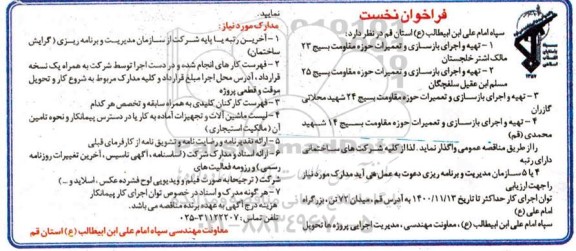 فراخوان نخست
سپاه امام علی ابن ابیطالب (ع) استان قم در نظر دارد:
۱ - تهیه و اجرای بازسازی و تعمیرات حوزه مقاومت بسیج ۲۳
مالک اشتر خلجستان
۲ - تهیه و اجرای بازسازی و تعمیرات حوزه مقاومت بسیج ۲۵
مسلم ابن عقیل سلفچگان
۳ - تهیه و اجرای بازسازی و تعمیرات حوزه مقاومت بسیج ۲۴ شهید محلاتی
گازران
۴ - تهیه و اجرای بازسازی و تعمیرات حوزه مقاومت بسیج ۱۴ شهید
محمدی (قم)
را از طریق مناقصه عمومی واگذار نماید. لذا از کلیه شرکت های ساختمانی
دارای رتبه
۴ یا ۵ سازمان مدیریت و برنامه ریزی دعوت به عمل می آید مدارک مورد نیاز
را جهت ارزیابی
توان اجرای کار حداکثر تا تاریخ ۱۴۰۰/۱۱/۱۳ به آدرس قم، میدان ۷۲ تن، بزرگراه
امام علی (ع)
سپاه امام علی ابن ابیطالب (ع)، معاونت مهندسی، مدیریت اجرایی پروژه ها تحویل
نمایید.
مدارک مورد نیاز:
۱ - آخرین رتبه یا پایه شرکت از سازمان مدیریت و برنامه ریزی (گرایش
ساختمان)
۲- فهرست کار های انجام شده و در دست اجرا توسط شرکت به همراه یک نسخه
قرارداد، آدرس محل اجرا مبلغ قرارداد و کلیه مدارک مربوط به شروع کار و تحویل
موقت و قطعی پروژه
۳- فهرست کارکنان کلیدی به همراه سابقه و تخصص هر کدام
۴- لیست ماشین آلات و تجهیزات آماده به کار یا در دسترس پیمانکار و نحوه تامین
آن (مالکیت استیجاری)
۵- ارائه تقدیرنامه و رضایت نامه و تشویق نامه از کارفرمای قبلی
۶- ارائه اسناد و مدارک شرکت (اساسنامه، آگهی تاسیس، آخرین تغییرات روزنامه
رسمی) و رزومه فعالیت های
شرکت (ترجیحا به صورت فیلم و ویدیویی لوح فشرده عکس، اسلاید و ...)
۷- هر گونه مدرک و اسناد در خصوص توان اجرای کار پیمانکار
هزینه درج آگهی به عهده برنده مناقصه می باشد.
تلفن تماس: ۳۱۱۲۲۲۰۷-۰۲۵
معاونت مهندسی سپاه امام علی ابن ابیطالب (ع) استان قم